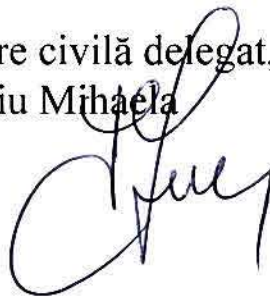 re civilă delegat,
iu Mihaela